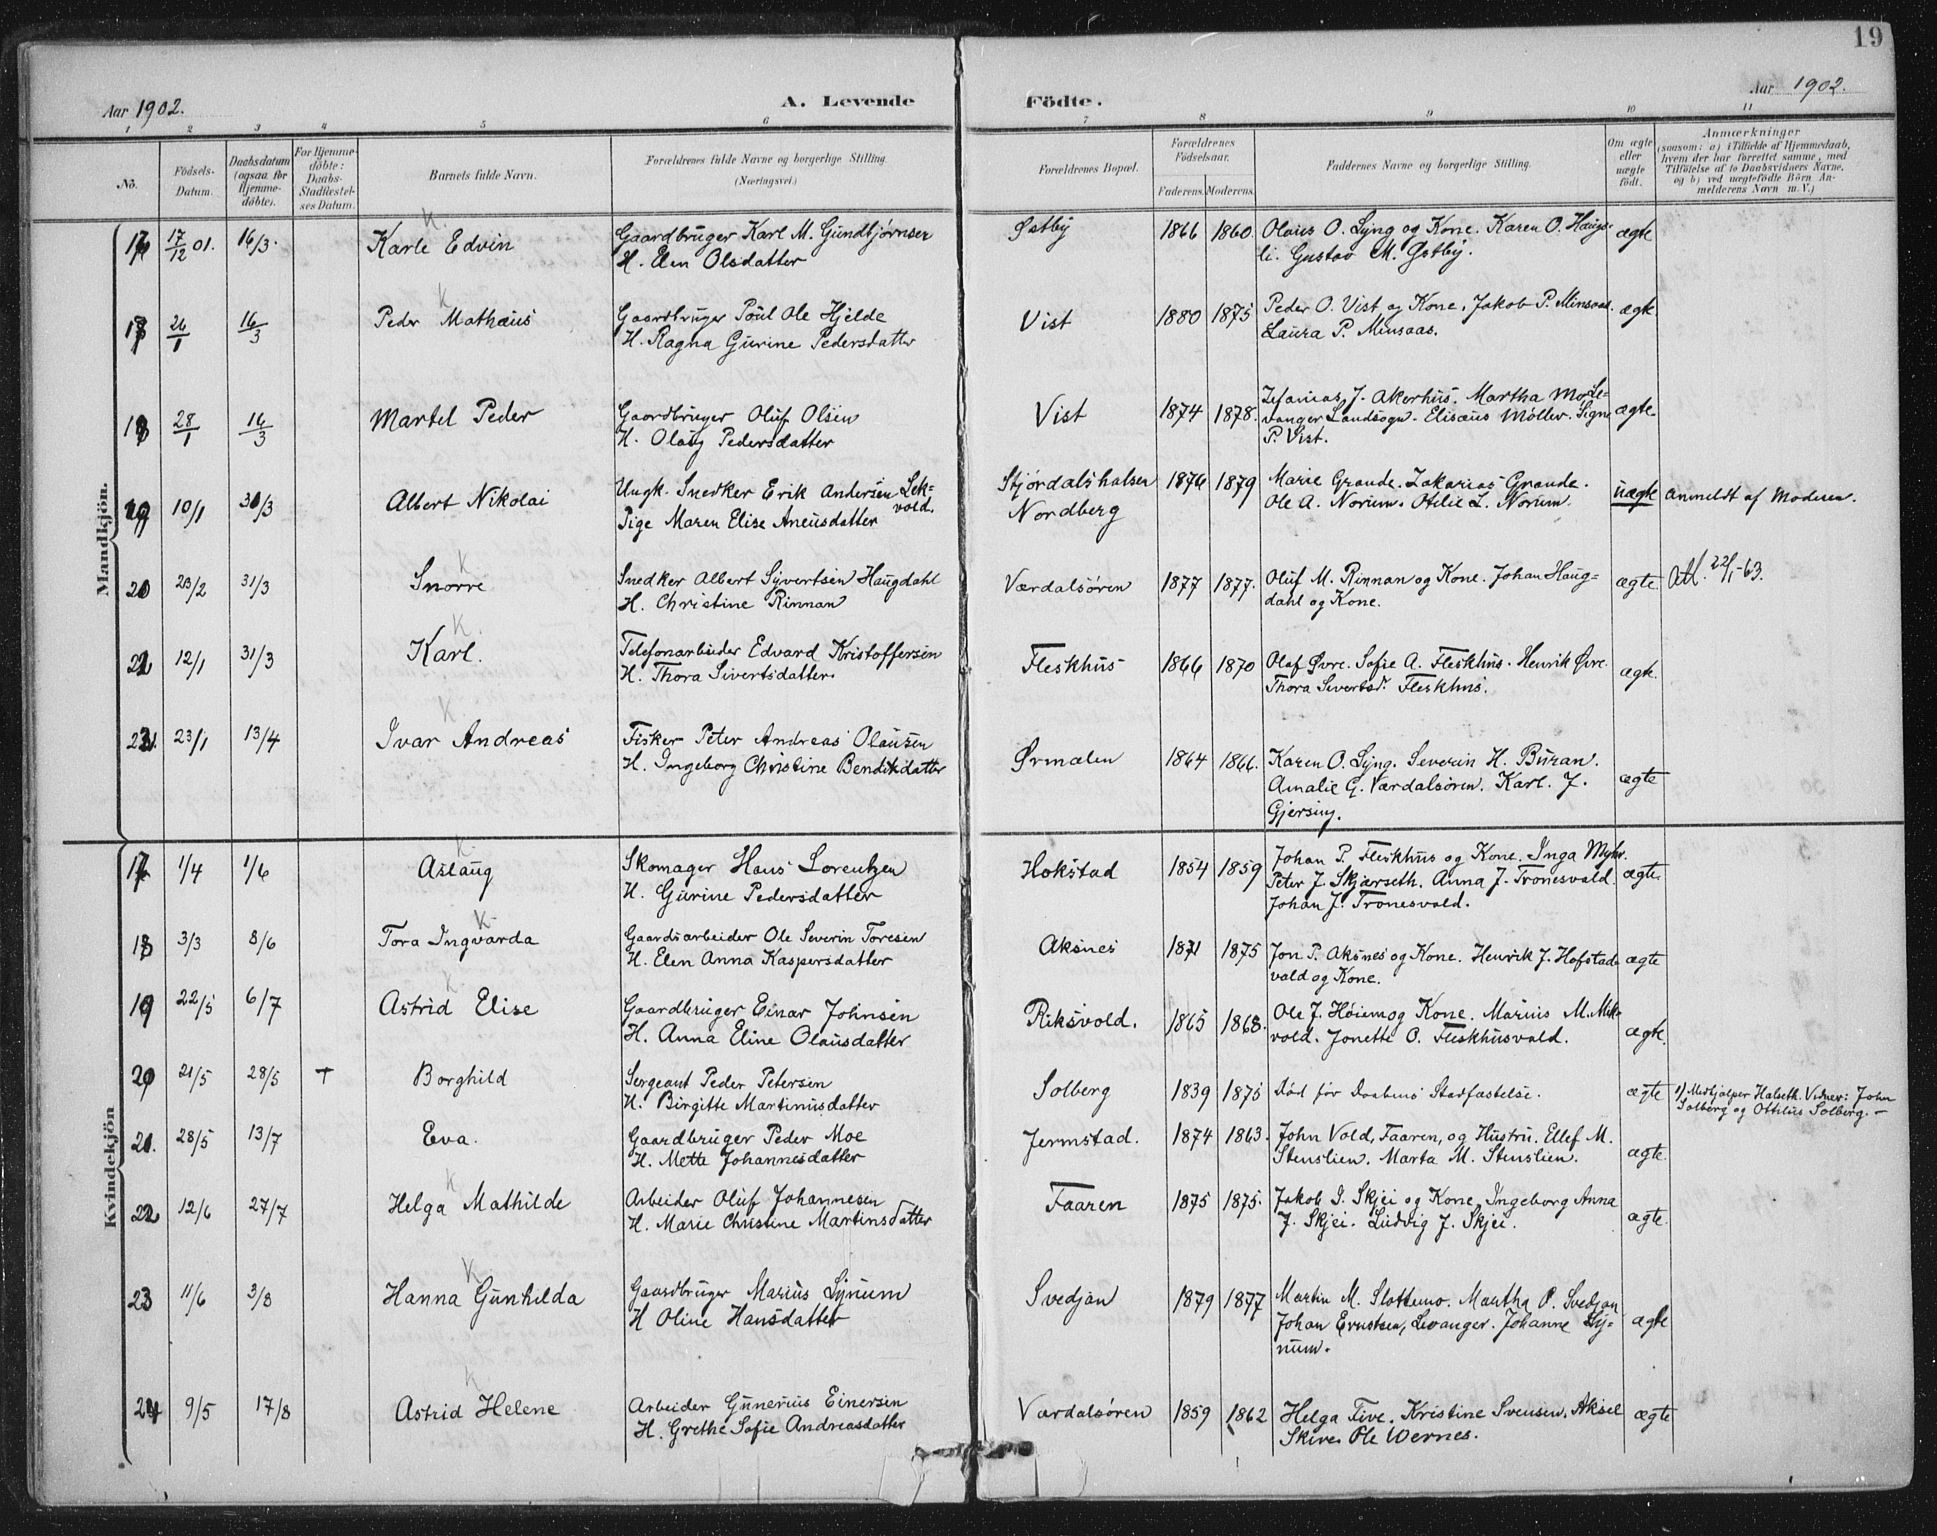 19
Aar 1902.
A. Levende Födte.
Aar 1902.
1 2 3 4 5 6 7 8 9 10 11
No.
Födsels-Datum.
Daabsdatum (ogsaa for Hjemme-döbte).
For Hjemme-döbte: Daabs-Stadfæstel-ses Datum.
Barnets fulde Navn.
Forældrenes fulde Navne og borgerlige Stilling. (Næringsvei.)
Forældrenes Bopæl.
Forældrenes Födselsaar.
Faderens. Moderens.
Faddernes Navne og borgerlige Stilling.
Om ægte eller uægte födt.
Anmærkninger
(saasom: a) i Tilfælde af Hjemmedaab,
hvem der har forrettet samme, med
Tilföielse af to Daabsvidners Navne,
og b) ved uægtefödte Börn An-
melderens Navn m. V.)
Mandkjön.
17/12 01. 16/3. Karle Edvin Gaardbruger Karl M. Gundbjørnsen Østby 1866 1860 Olaus O. Lyng og Kone. Karen O. Haugs- ægte
H. Elen Olsdatter li. Gustav M. Østby.
26/1 16/3 Peder Mathæus Gaardbruger Poul Ole Hjelde Vist 1880 1875 Peder O. Vist og Kone. Jakob P. Minsaas. ægte
H. Ragna Gurine Pedersdatter Laura P. Minsaas.
28/1 16/3 Martel Peder Gaardbruger Oluf Olsen Vist 1874 1878. J. Akerhus. Martha Mo Le- ægte
H. Olaug Pedersdatter vanger Landsogn. Elisæus Møller. Signe
P. Vist.
10/1 Albert Nikolai Ungk. Snedker Erik Andersen Lek- Stjørdalshalsen 1876 1879 Marie Grande. Zakarias Grande. uægte Anmeldt af Moderen.
vold.
Pige Maren Elise Aneusdatter Nordberg Ole A. Norum. Otilie L. Norum.
20 23/2 31/3 Snorre Snedker Albert Syvertsen Haugdahl Værdalsøren 1877 1877. Oluf M. Rinnan og Kone. Johan Haug- ægte 22/1-63.
H. Christine Rinnan dahl og Kone.
12/1 31/3 Karl. Telefonarbeider Edvard Kristoffersen Fleskhus 1866 1870 Olaf Øvre. Sofie A. Fleskhus. Henrik Øvre. ægte.
H. Thora Sivertsdatter. Thora Sivertsd. Fleskhus.
23/1 13/4 Ivar Andreas Fisker Peter Andreas Olausen Ørmælen 1864 1866. Karen O. Lyng. Severin H. Buran. ægte
H. Ingeborg Christine Bendiksdatter Amalie G. Værdalsøren. Karl. J.
Gjersing.
Kvindekjön
17 1/4 1/6 Aslaug Skomager Hans Lorentzen Hokstad 1854 1859 Johan P. Fleskhus og Kone. Inga Myhr. ægte.
H. Gurine Pedersdatter Peter J. Skjærseth. Anna J. Tronesvald.
Johan J. Tronesvald.
18 3/3 8/6 Tora Ingvarda Gaardsarbeider Ole Severin Toresen Aksnes 1871 1875 Jon P. Aksnes og Kone. Henrik J. Hofstad- ægte
H. Elen Anna Kaspersdatter vald og Kone.
19 22/5 6/7 Astrid Elise Gaardbruger Einar Johnsen Riksvold. 1865 1868. Ole J. Høiem og Kone. Marius M. Mik- ægte.
H. Anna Eline Olausdatter vold. Jonette O. Fleskhusvald.
20 21/5 28/5 + Borghild Sergeant Peder Petersen Solberg 1839 1875 Død før Daabens Stadfæstelse. ægte 1) Medhjælper Halseth. Vidner: John
H. Birgitte Martinusdatter Solberg og Ottilus Solberg. -
21. 28/5 13/7 Eva. Gaardbruger Peder Moe Jermstad. 1874 1863. John Vold, Faaren, og Hustru. Ellef M. ægte.
H. Mette Johannesdatter Stenslien. Marta M. Stenslien.
22 12/6 27/7 Helga Mathilde Arbeider Oluf Johannesen Faaren 1875 1875. Jakob I. Skjei og Kone, Ingeborg Anna ægte.
H. Marie Christine Martinsdatter J. Skjei. Ludvig J. Skjei.
23 11/6 3/8 Hanna Gunhilda Gaardbruger Marius Lynum Svedjan 1879 1877 Martin M. Slottemo. Martha P. Svedjan ægte
H Oline Hansdatter Johan Ernstsen, Levanger. Johanne Ly-
num.
24 9/5 17/8 Astrid Helene Arbeider Gunerius Einersen Værdalsøren 1859 1862 Helga Tive. Kristine Svensen. Aksel ægte
H. Grethe Sofie Andreasdatter Skive. Ole Wernes.